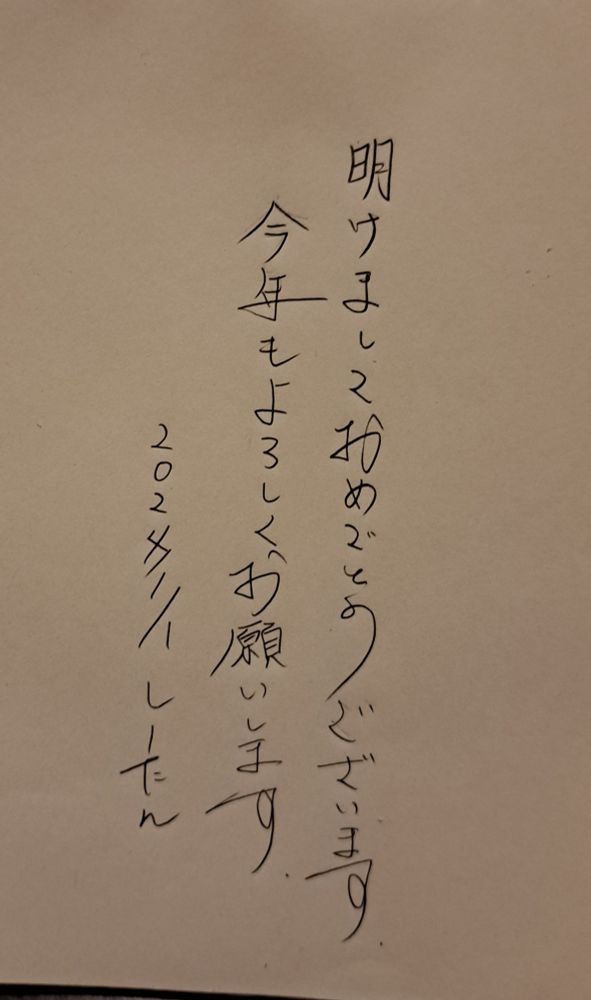 明けましておめでとうございます.
今年もよろしくお願いします.
2024/1/1 しーたん